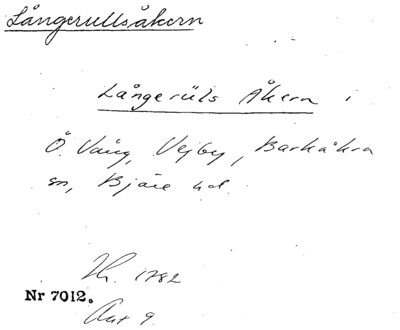 Långerullsåkern
Långerüls Åkern i
Ö. Vång, Vejby, Barkåkra
sn, Bjäre hd.
Lh. 1782
Nr 7012.
Akt 9.